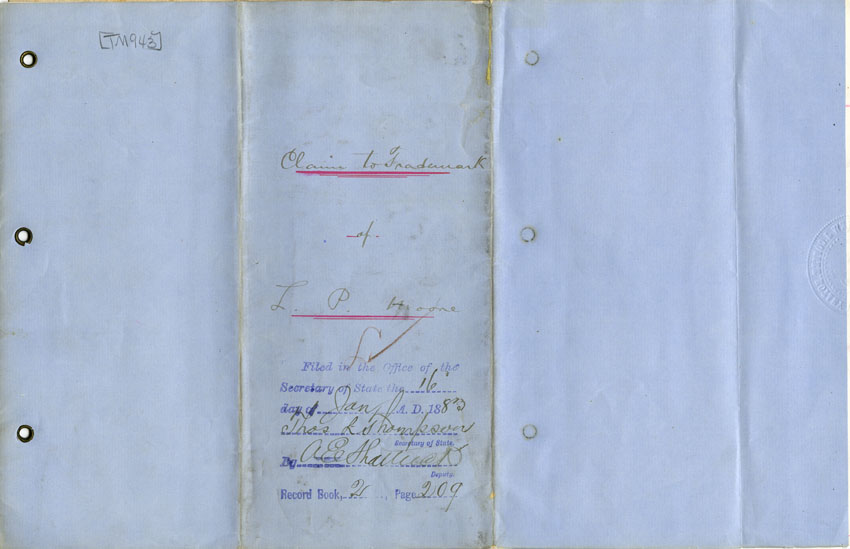 [TM943]
Claim to Trademark
of
L. P.
Filed in the Office of the
Secretary of State the 16
day of Jan A. D. 1883
Thos L Thompson
Secretary of State.
By A E
Deputy.
Record Book, 2, Page 209